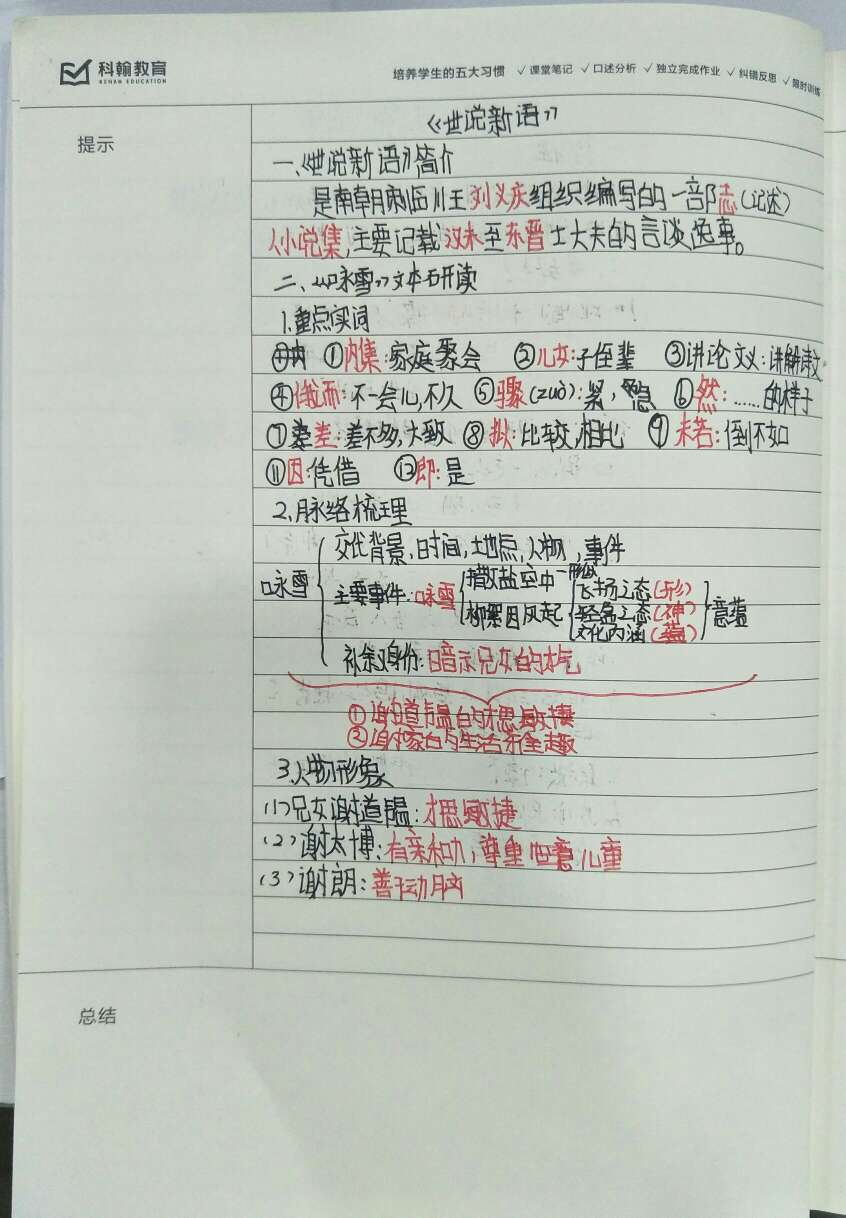 科翰教育
KEHAN EDUCATION
培养学生的五大习惯 ✓课堂笔记 ✓口述分析 ✓独立完成作业 ✓纠错反思 ✓限时训练
提示
《世说新语》
一、《世说新语》简介
是南朝宋临川王刘义庆组织编写的一部志(记述)
人小说集,主要记载汉末至东晋士大夫的言谈逸事。
二、《咏雪》文本研读
1.重点实词
①内集:家庭聚会 ②儿女:子侄辈 ③讲论文义:讲解诗文
④俄而:不一会儿,不久 ⑤骤(zuò):紧,急 ⑥然:……的样子
⑦差:差不多,大致 ⑧拟:比较,相比 ⑨未若:倒不如
⑪因:凭借 ⑫即:是
2.脉络梳理
交代背景,时间,地点,人物,事件
咏雪 主要事件:咏雪 撒盐空中—形似 飞扬之态(形)
柳絮因风起 轻盈之态(神) 意蕴
文化内涵(蕴)
补叙身份:暗示兄女的才气
①谢道韫的才思敏捷
②谢家的生活乐趣
3.人物形象
(1)兄女谢道韫:才思敏捷
(2)谢太博:有亲和力,尊重 儿童
(3)谢朗:善于动脑
总结